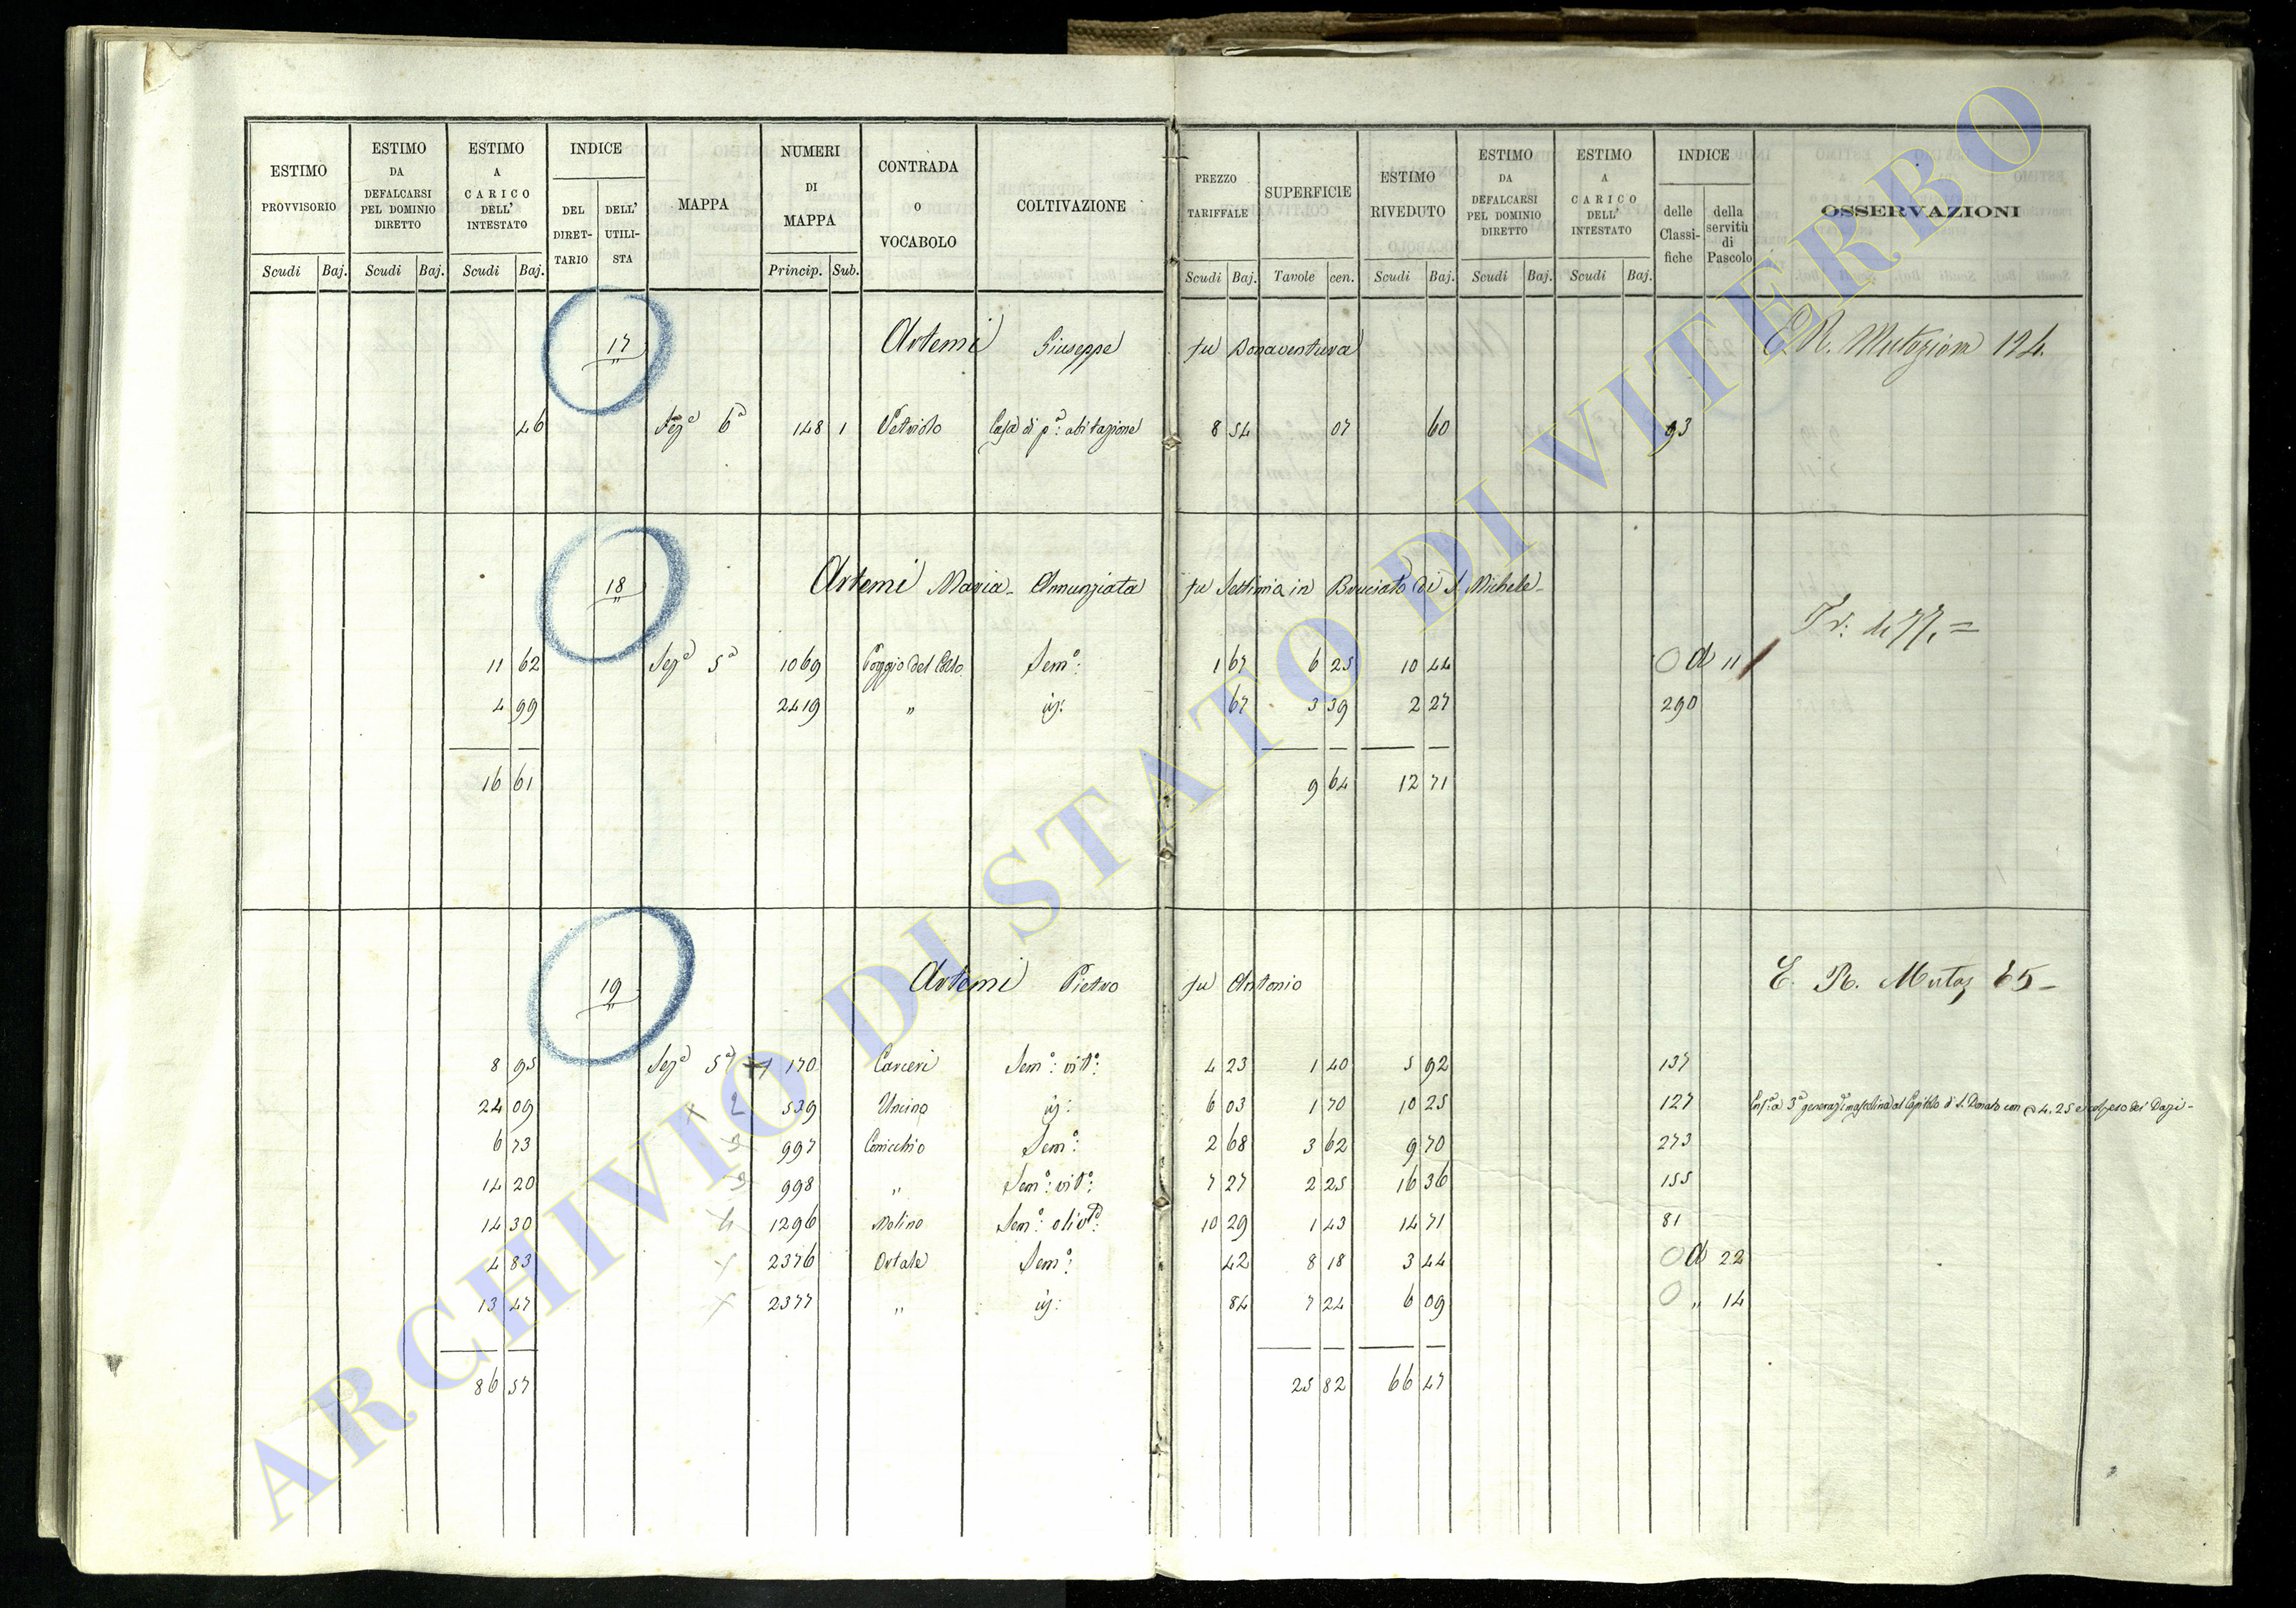 ESTIMO PROVVISORIO Scudi Baj.
ESTIMO DA DEFALCARSI PEL DOMINIO DIRETTO Scudi Baj.
ESTIMO A CARICO DELL' INTESTATO Scudi Baj.
INDICE DEL DIRET-TARIO DELL' UTILI-STA
MAPPA
NUMERI DI MAPPA Princip. Sub.
CONTRADA O VOCABOLO
COLTIVAZIONE
PREZZO TARIFFALE Scudi Baj.
SUPERFICIE Tavole cen.
ESTIMO RIVEDUTO Scudi Baj.
ESTIMO DA DEFALCARSI PEL DOMINIO DIRETTO Scudi Baj.
ESTIMO A CARICO DELL' INTESTATO Scudi Baj.
INDICE delle Classi-fiche della servitù di Pascolo
OSSERVAZIONI
17 Artemi Giuseppe fu Bonaventura E. R. Mutazione 124.
46 Sezᵉ 6ᵃ 148 1 Vetriolo Casa di pᵃ: abitazione 8 54 07 60 93
18 Artemi Maria Annunziata fu Settimia in Bruciato di S. Michele
Tr: 477, =
11 62 Sezᵉ 5ᵃ 1069 Poggio del Semº: 1 67 6 25 10 44 O d 11
4 99 2419 " id: 67 3 39 2 27 290
16 61 9 64 12 71
19 Artemi Pietro fu Antonio E. R. Mutaz 65
8 95 Sezᵉ 5ᵃ 1 170 Carceri Semº: vitº: 4 23 1 40 5 92 137
24 09 x 2 539 Uncino id: 6 03 1 70 10 25 127 Enfᵃ a 3ᵃ generazᵉ mascolina al Capitolo di S. Donato con 4.25 e col peso dei Dazi -
6 73 3 997 Conicchio Semº: 2 68 3 62 9 70 273
14 20 3 998 " Semº: vitº: 7 27 2 25 16 36 155
14 30 4 1296 Molino Semº: olivtº: 10 29 1 43 14 71 81
4 83 x 2376 Ortale Semº: 42 8 18 3 44 O d 22
13 47 x 2377 " id: 84 7 24 6 09 O " 14
86 57 25 82 66 47
ARCHIVIO DI STATO DI VITERBO